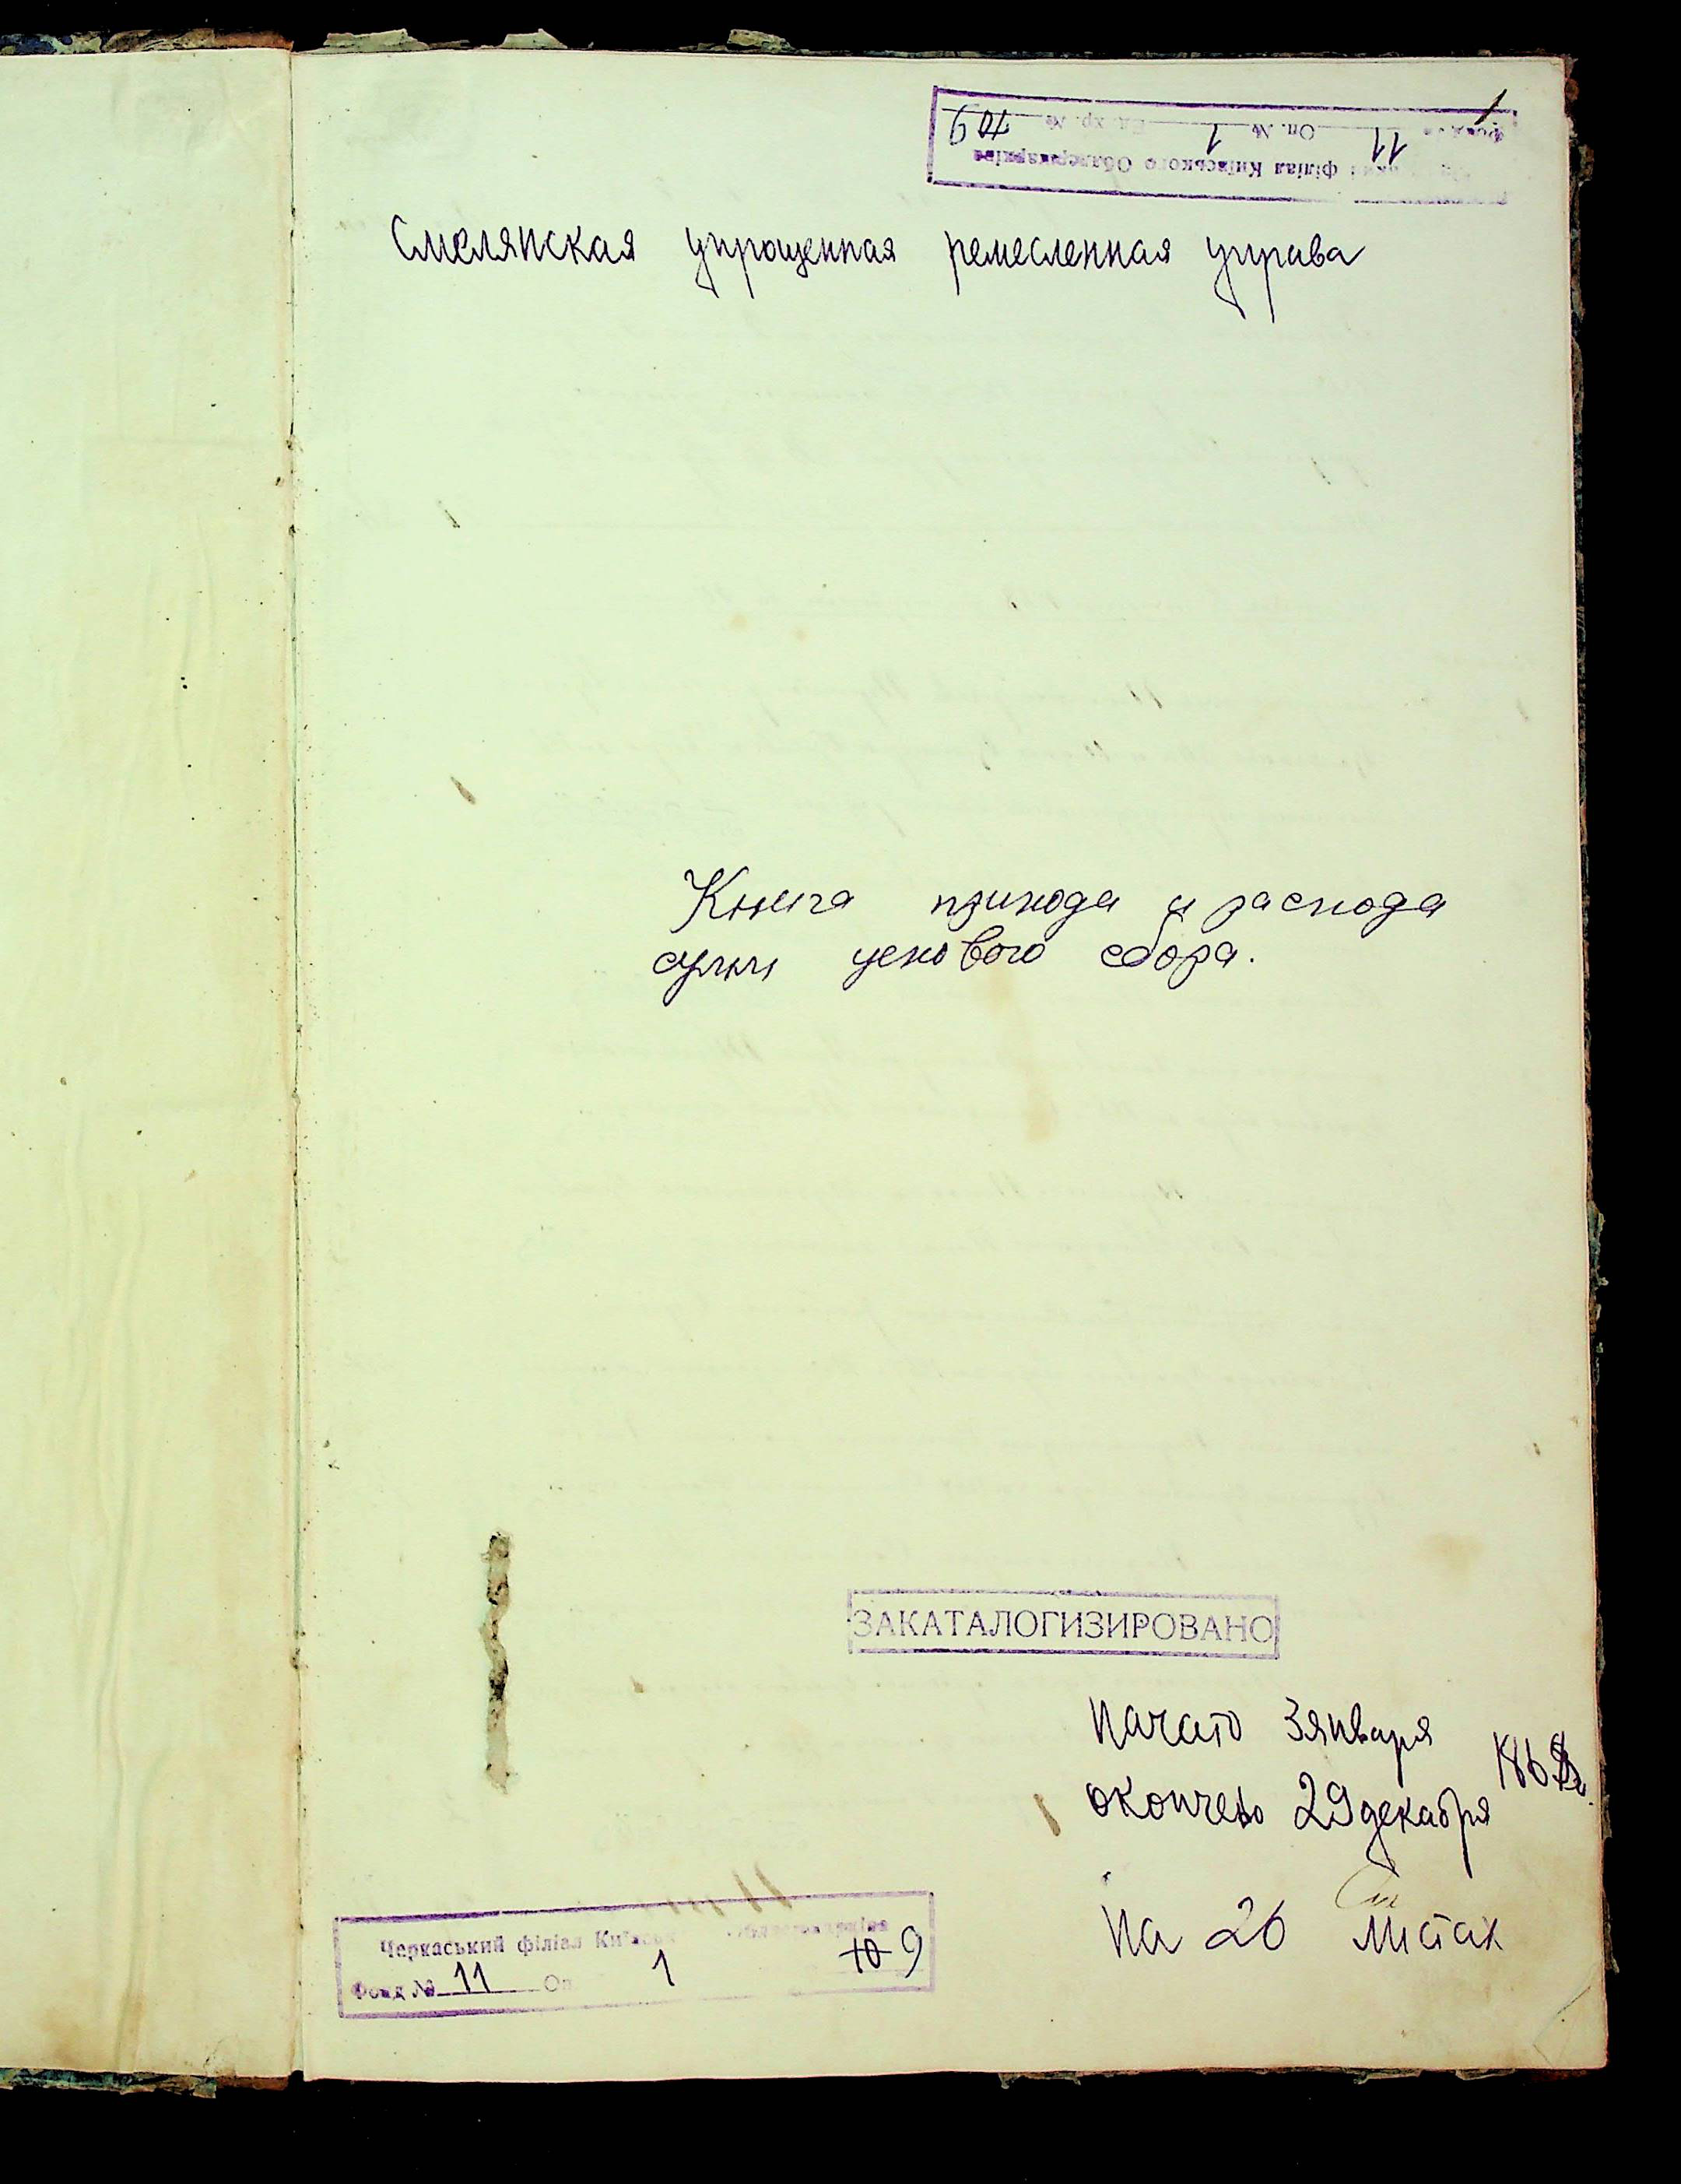 1
філіал Київського Облдержархіва
11 Оп. № 1 Ед. хр. № 10 9
Смелянская упрощенная ремесленная управа
Книга прихода и расхода
сумм цехового сбора.
ЗАКАТАЛОГИЗИРОВАНО
Начато 3 января
окончено 29 декабря
На 26 листах
Черкаський філіал
Фонд № 11 Оп 1 10 9